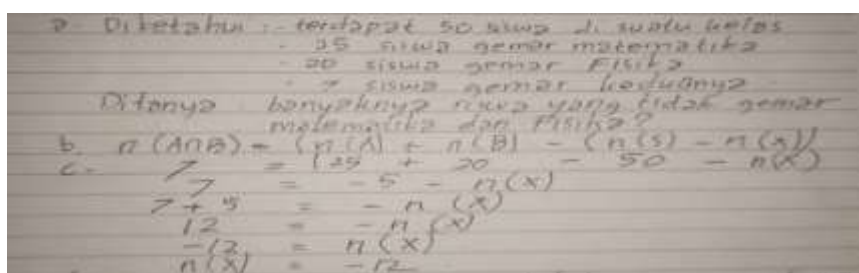 a. Diketahui :- terdapat 50 siswa di suatu kelas
- 25 siswa gemar matematika
- 20 siswa gemar Fisika
- 7 siswa gemar keduanya
Ditanya : banyaknya siswa yang tidak gemar
matematika dan Fisika?
b. n (A∩B) = (n (A) + n (B) - (n (S) - n (x))
c. 7 = (25 + 20 - 50 - n(x)
7 = -5 - n(x)
7 + 5 = - n (x)
12 = - n (x)
-12 = n (x)
n(x) = -12